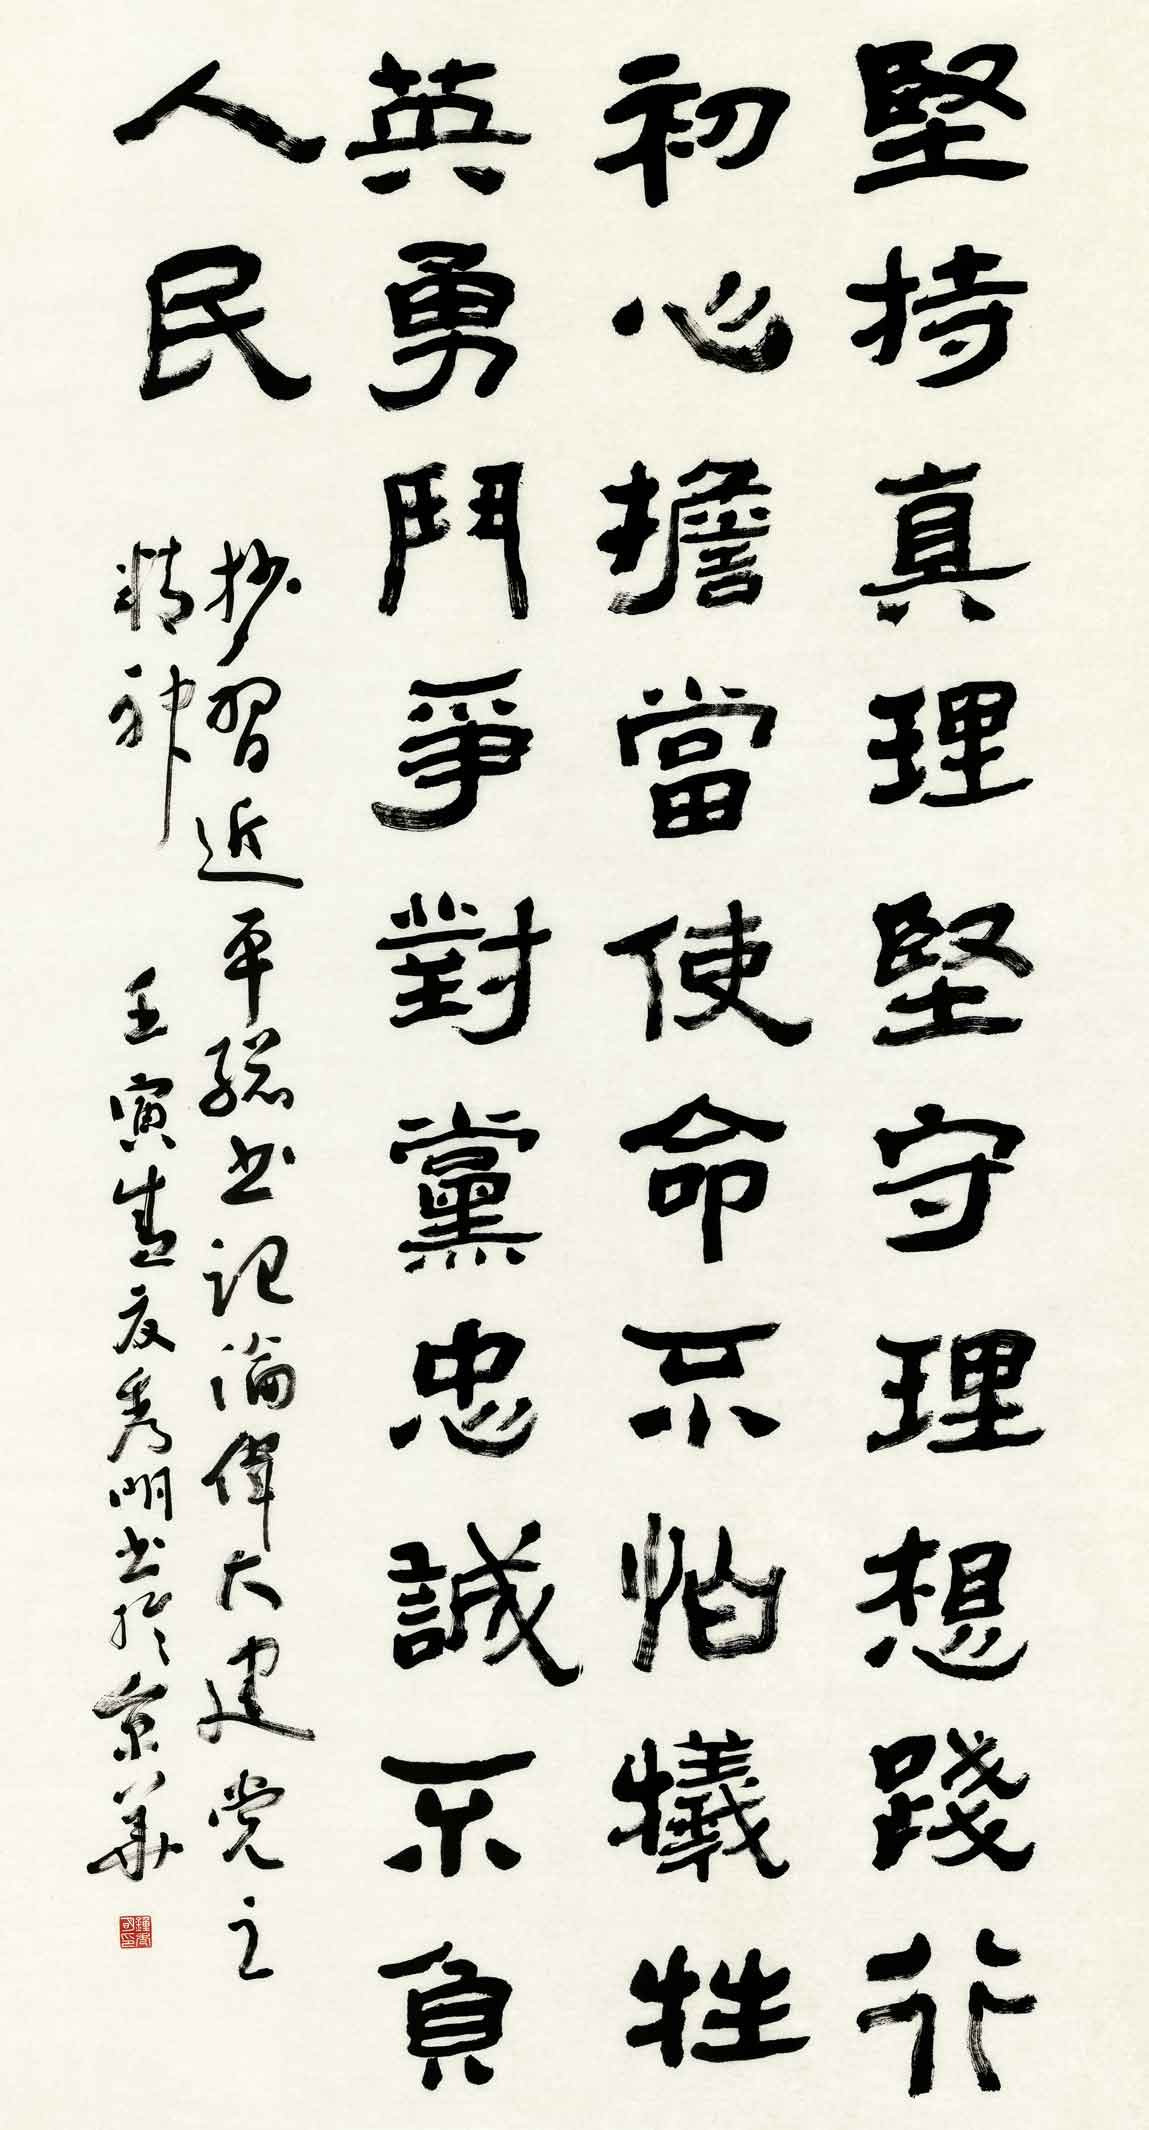 堅持真理堅守理想踐行
初心擔當使命不怕犧牲
英勇鬥爭對黨忠誠不負
人民
抄習近平總书记論偉大建党之
精神
壬寅盛夏秀明书於京華